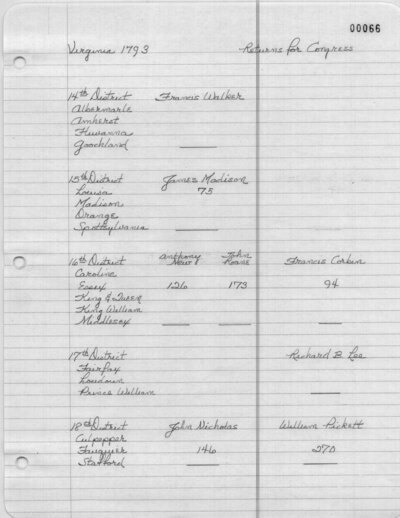 00066
Virginia 1793 Returns for Congress
14th District Francis Walker
Albermarle
Amherst
Fluvanna
Goochland
15th District James Madison
Louisa 75
Madison
Orange
Spottsylvania
16th District Anthony New John Roane Francis Corbin
Caroline
Essex 126 173 94
King & Queen
King William
Middlesex
17th District Richard B. Lee
Fairfax
Loudoun
Prince William
18th District John Nicholas William Pickett
Culpepper
Fauquier 146 270
Stafford